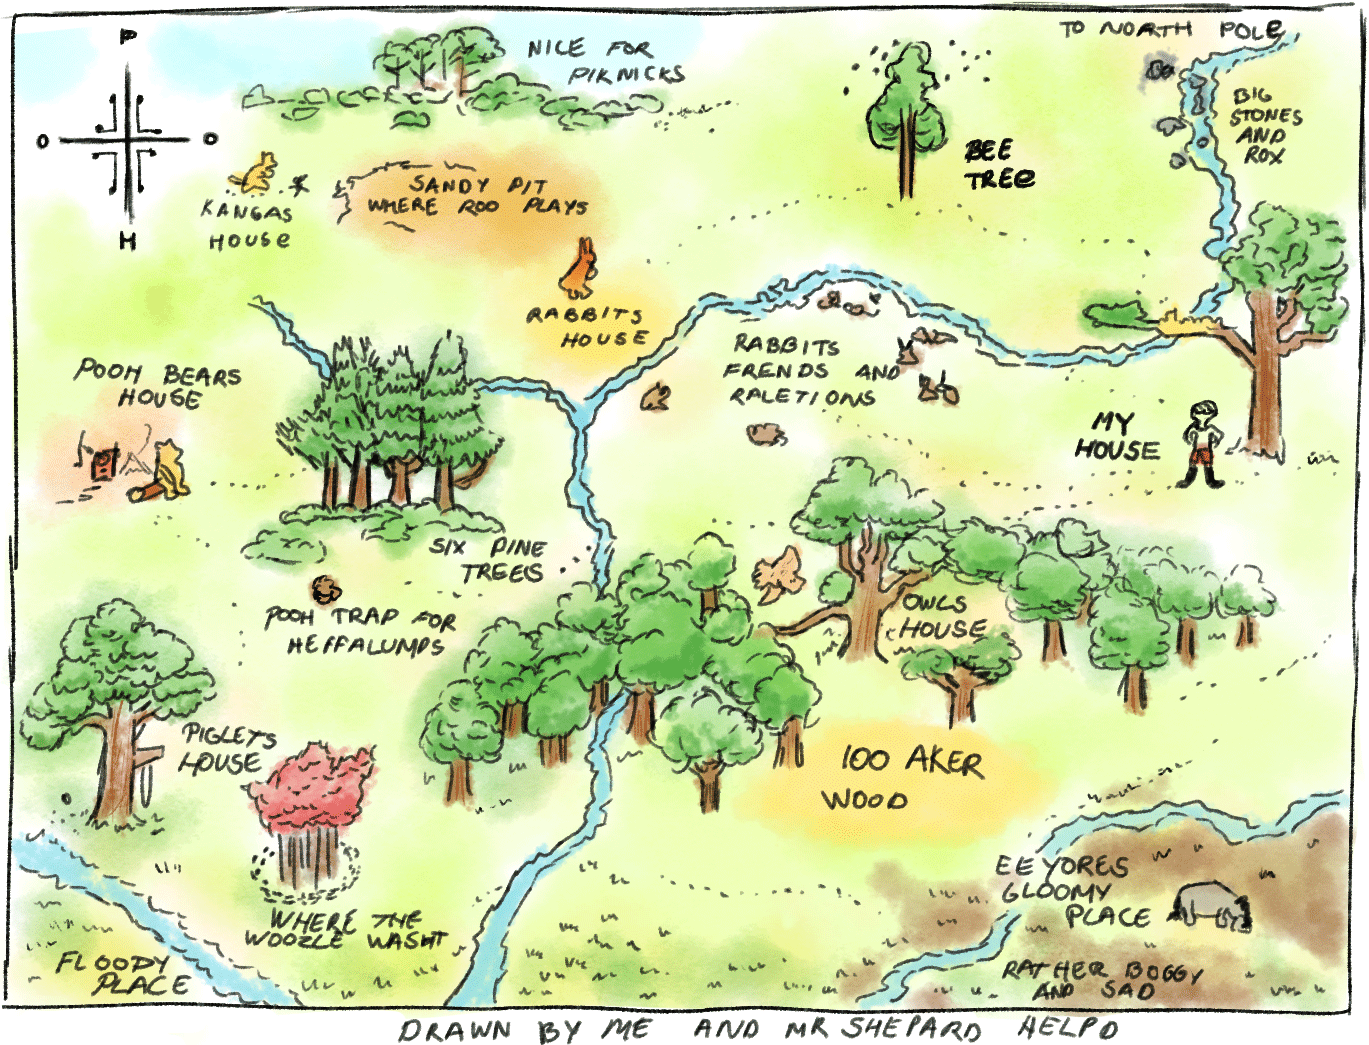 P
O
O
H
NICE FOR
PIKNICKS
TO NORTH POLE
BIG
STONES
AND
ROX
BEE
TREE
KANGAS
HOUSE
SANDY PIT
WHERE ROO PLAYS
RABBITS
HOUSE
RABBITS
FRENDS AND
RALETIONS
POOH BEARS
HOUSE
MY
HOUSE
SIX PINE
TREES
POOH TRAP FOR
HEFFALUMPS
OWLS
HOUSE
PIGLETS
HOUSE
100 AKER
WOOD
WHERE THE
WOOZLE WASNT
FLOODY
PLACE
EEYORES
GLOOMY
PLACE
RATHER BOGGY
AND SAD
DRAWN BY ME AND MR SHEPARD HELPD